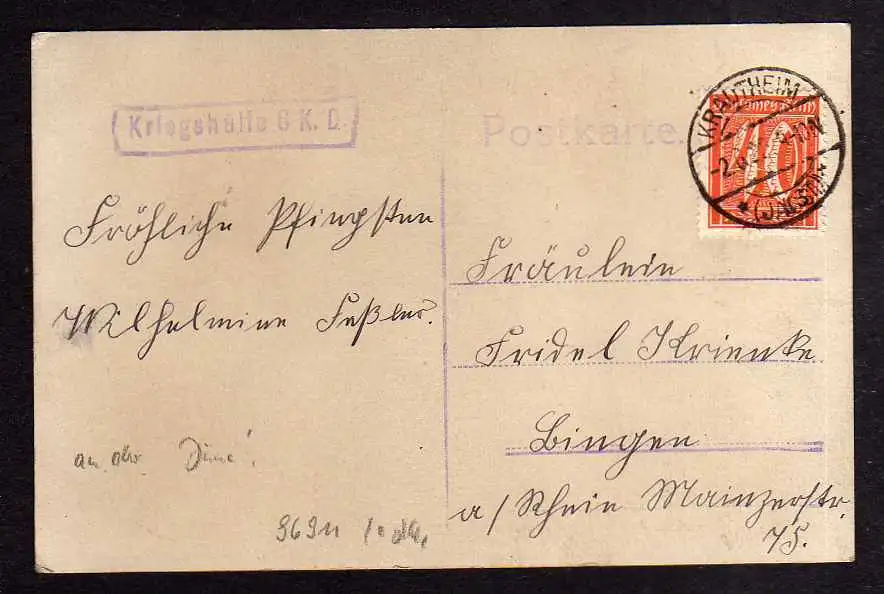 Kriegshülfe G K. D.
Postkarte.
KRAUTHEIM
(JAGST)
40
Fröhliche Pfingsten
Wilhelmine Feßler.
Fräulein
Fridel Krienke
Bingen
a/Rhein Mainzerstr.
75.